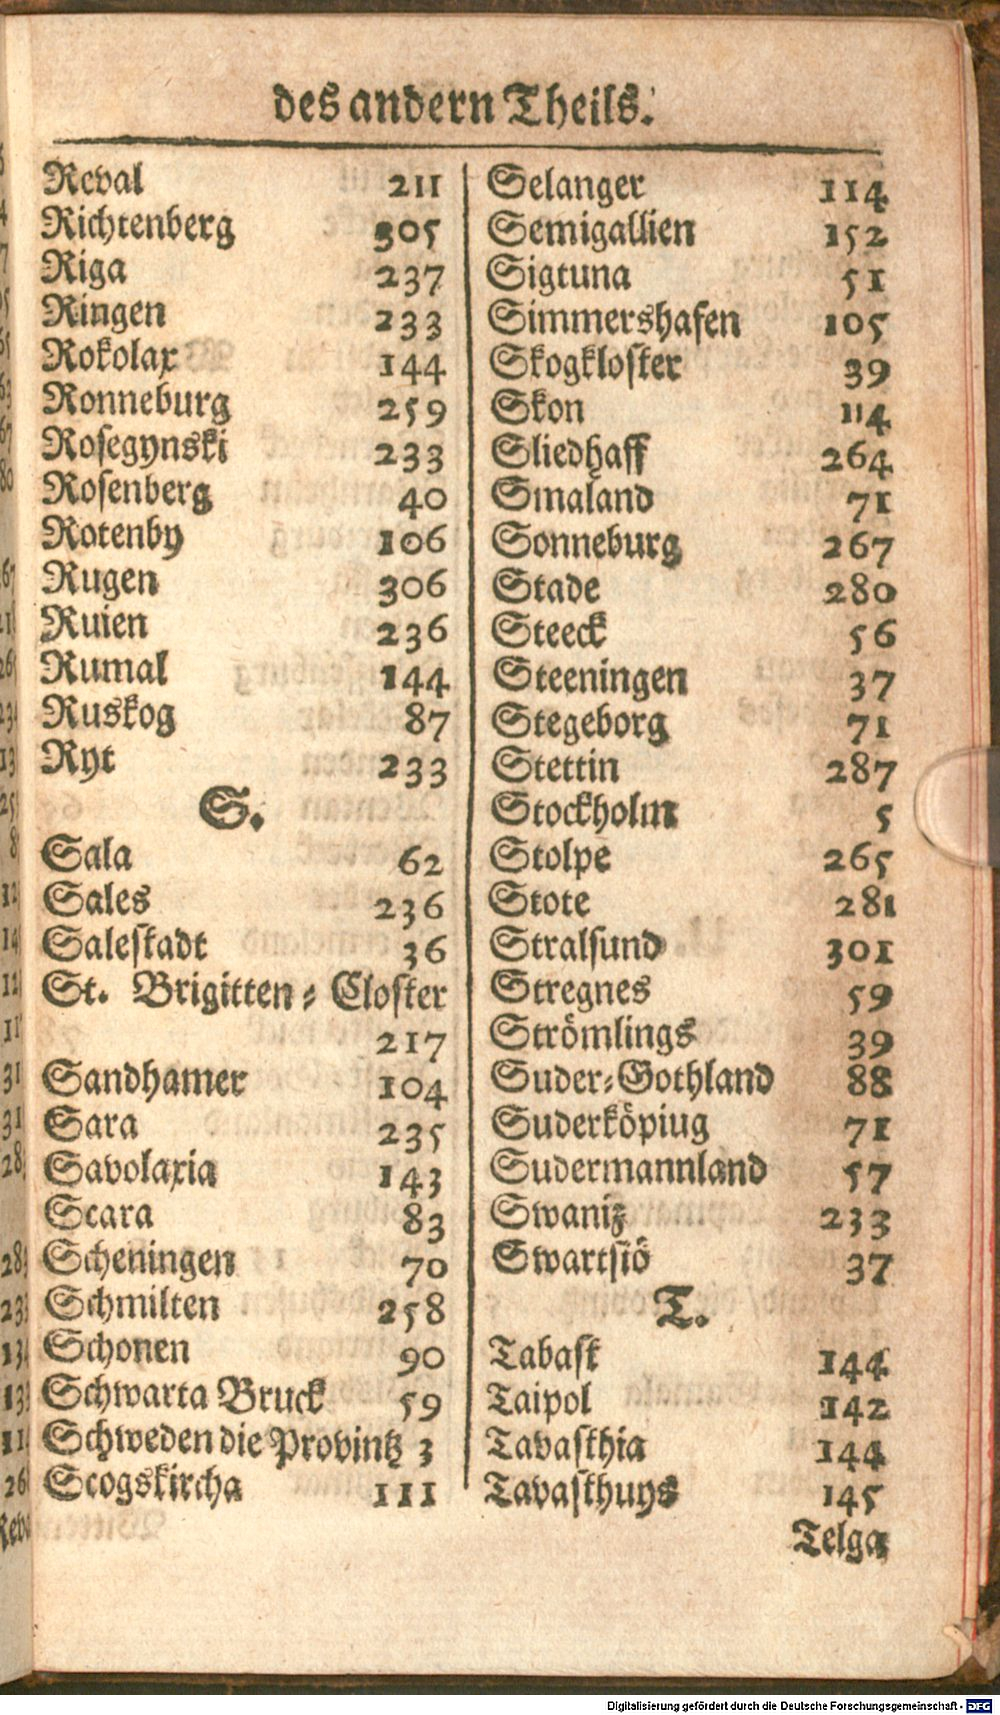 des andern Theils.
Reval 211
Richtenberg 305
Riga 237
Ringen 233
Rokolax 144
Ronneburg 259
Rosegynski 233
Rosenberg 40
Rotenby 106
Rugen 306
Ruien 236
Rumal 144
Ruskog 87
Ryt 233
S.
Sala 62
Sales 236
Salestadt 36
St. Brigitten-Closter
217
Sandhamer 104
Sara 235
Savolaxia 143
Scara 83
Scheningen 70
Schmilten 258
Schonen 90
Schwarta Bruck 59
Schweden die Provintz 3
Scogskircha 111
Selanger 114
Semigallien 152
Sigtuna 51
Simmershafen 105
Skogkloster 39
Skon 114
Sliedhaff 264
Smaland 71
Sonneburg 267
Stade 280
Steeck 56
Steeningen 37
Stegeborg 71
Stettin 287
Stockholm 5
Stolpe 265
Stote 281
Stralsund 301
Stregnes 59
Strömlings 39
Suder-Gothland 88
Suderköpiug 71
Sudermannland 57
Swanitz 233
Swartsiö 37
T.
Tabast 144
Taipol 142
Tavasthia 144
Tavasthuys 145
Telga
Digitalisierung gefördert durch die Deutsche Forschungsgemeinschaft - DFG